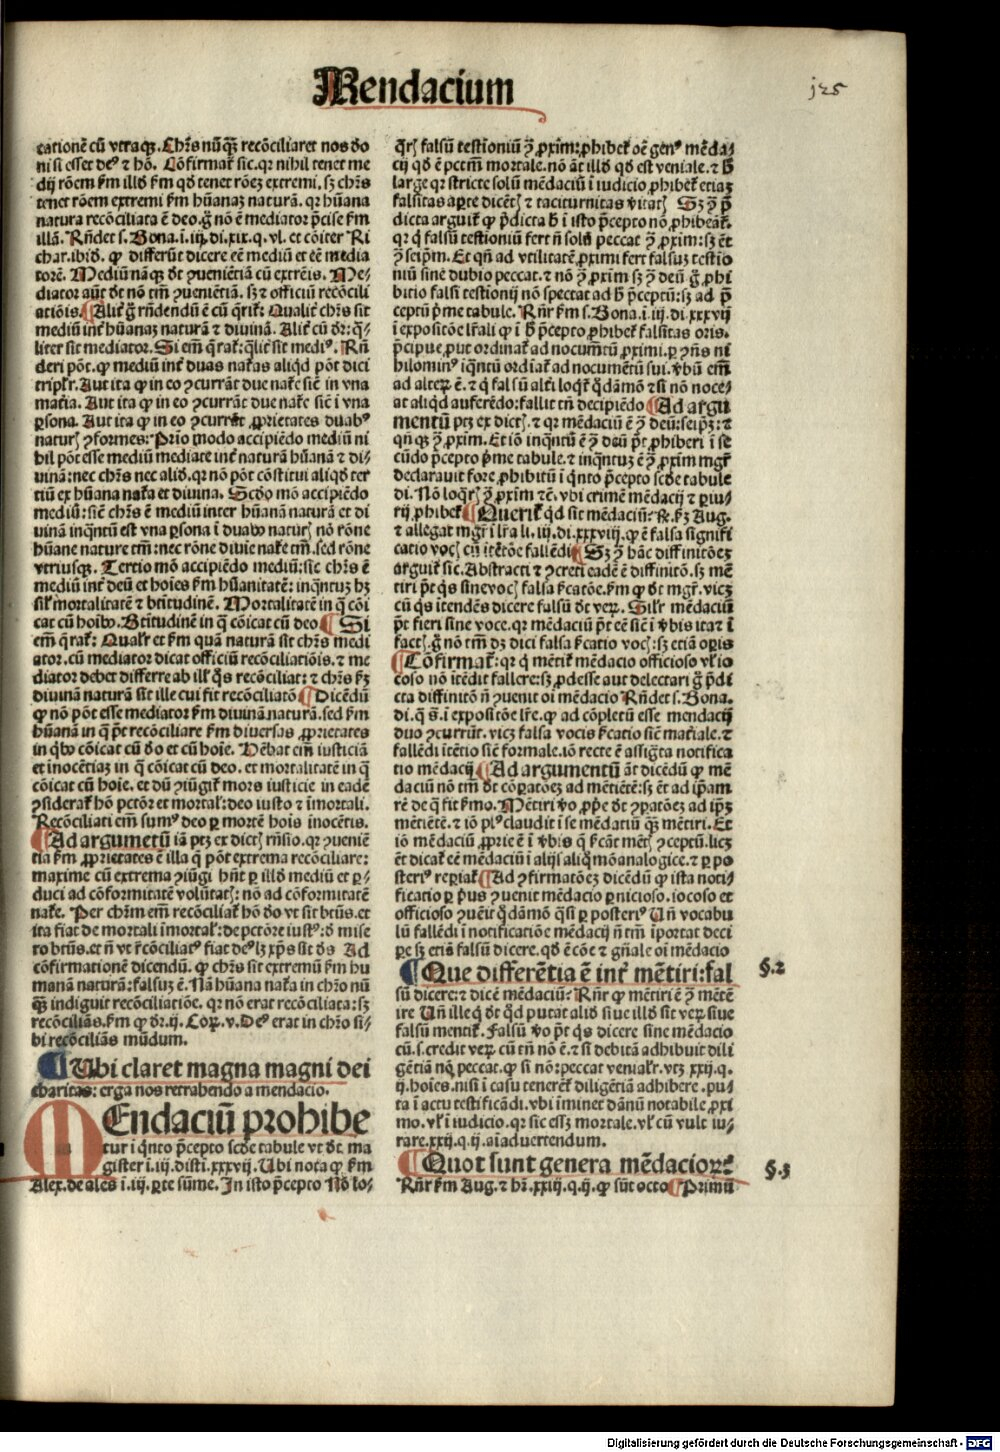 Mendacium
125
cationē cū vtraqꝫ. Chrs nūqꝫ recōciliaret nos do
ni si esset deꝰ ⁊ hō. Cōfirmat̃ sic. qr nihil tenet me
dij rōem ẜm illḋ ẜm qḋ tenet rōeꝫ extremi. sꝫ chrs
tenet rōem extremi ẜm hūanaꝫ naturā. qr hūana
natura recōciliata ē deo. ḡ nō ē mediator p̄cise ẜm
illā. Rñdet s. Bona. i. iij. di. xix. q. vl. et cōiter Ri
char. ibiḋ. ꝙ differūt dicere eē mediū et eē media
torē. Mediū nāqꝫ ḋt ꝯueniētiā cū extrēis. Me⸗
diator aūt ḋt nō tm̄ ꝯueniētiā. sꝫ ⁊ officiū recōcili
atiōis. Alit̃ ḡ rñdendū ē cū q̄rit̃: Qualit̃ chrs sit
mediū int̃ hūanaꝫ naturā ⁊ diuinā. Alit̃ cū ḋr: q̄⸗
liter sit mediator. Si em̄ q̄rat̃: q̄lit̃ sit mediꝰ. Rñ
deri pōt. ꝙ mediū int̃ duas nat̃as aliqḋ pōt dici
triplr̃. Aut ita ꝙ in eo ꝯcurrāt due nat̃e sic̄ in vna
mat̃ia. Aut ita ꝙ in eo ꝯcurrāt due nat̃e sic̄ i vna
ꝑsona. Aut ita ꝙ in eo ꝯcurrāt ꝓprietates duabꝰ
naturꝭ ꝯformes: Prīo modo accipiēdo mediū ni
hil pōt esse mediū mediate int̃ naturā hūanā ⁊ di⸗
uinā: nec chrs nec aliḋ. qr nō pōt cōstitui aliqḋ ter
tiū ex hūana nat̃a et diuina. Scḋo mō accipiēdo
mediū: sic̄ chrs ē mediū inter hūanā naturā et di
uinā inq̄ntū est vna ꝑsona i duabꝰ naturꝭ nō rōne
hūane nature tm̄: nec rōne diuie nat̃e tm̄. sed rōne
vtriusqꝫ. Tertio mō accipiēdo mediū: sic chrs ē
mediū int̃ deū et hoīes ẜm hūanitatē: inq̄ntuꝫ hꝫ
sil̃ mortalitatē ⁊ btitudinē. Mortalitatē in q̄ cōi
cat cū hoībꝰ. Btitudinē in q̄ cōicat cū deo Si
em̄ q̄rat̃: Qualr̃ et ẜm quā naturā sit chrs medi
ator. cū mediator dicat officiū recōciliatiōis. ⁊ me
diator debet differre ab ill̃ q̄s recōciliat: ⁊ chrs ẜꝫ
diuinā naturā sit ille cui fit recōciliatō Dicēdū
ꝙ nō pōt esse mediator ẜm diuinā naturā. sed ẜm
hūanā in q̄ p̄t recōciliare ẜm diuersas ꝓprietates
in q̄bꝰ cōicat cū ḋo et cū hoīe. Hēbat em̄ iusticiā
et inocētiaꝫ in q̄ cōicat cū deo. et mortalitatē in q̄
cōicat cū hoīe. et dū ꝯiūgit̃ mors iusticie in eadē
ꝯsiderat̃ hō pctōr et mortal̃: deo iusto ⁊ īmortali.
Recōciliati em̄ sumꝰ deo ꝑ mortē hoīs inocētis.
Ad argumētū iā ptꝫ ex dictꝭ rñsio. qr ꝯueniē
tia ẜm ꝓprietates ē illa q̄ pōt extrema recōciliare:
maxime cū extrema ꝯiūgi hñt ꝑ illḋ mediū et ꝑ⸗
duci ad cōformitatē volūtatꝭ: nō ad cōformitatē
nat̃e. Per chrm em̄ recōciliat̃ hō ḋo vt sit btūs. et
ita fiat de mortali īmortal̃: de pctōre iustꝰ: ḋ mise
ro btūs. et n̄ vt r̄cōciliatꝰ fiat deꝰ lꝫ xp̄s sit ḋs Ad
cōfirmationē dicendū. ꝙ chrs sit extremū ẜm hu
manā naturā: falsuꝫ ē. Nā hūana nat̃a in chro nū
qꝫ indiguit recōciliatiōe. qr nō erat recōciliata: sꝫ
recōciliās. ẜm ꝙ ḋr. ij. Coꝝ. v. Deꝰ erat in chro si⸗
bi recōciliās mūdum.
Ubi claret magna magni dei
charitas: erga nos retrahendo a mendacio.
MEndaciū prohibe
tur i q̄nto p̄cepto scḋe tabule vt ḋt. ma
gister i. iij. disti. xxxvij. Ubi nota ꝙ ẜm
Alex. de ales i. iij. ꝑte sūme. In isto p̄cepto Nō lo⸗
q̄rꝭ falsū testioniū ꝯ̄ ꝓxim̄: ꝓhibet̃ oē genꝰ mēda⸗
cij qḋ ē pctm̄ mortale. nō āt illḋ qḋ est veniale. ⁊ ħ
large qr stricte solū mēdaciū i iudicio ꝓhibet̃ etiaꝫ
falsitas aꝑte dicētꝭ ⁊ taciturnitas v̄itatꝭ Sꝫ ꝯ̄ p̄
dicta arguit̃ ꝙ p̄dicta ħ i isto p̄cepto nō ꝓhibeāt̃.
qr q̇ falsū testioniū fert n̄ solū peccat ꝯ̄ ꝓxim̄: sꝫ ēt
ꝯ̄ seip̄m. Et qñ ad vtilitatē ꝓximi fert falsuꝫ testio
niū sine dubio peccat. ⁊ nō ꝯ̄ ꝓxim̄ sꝫ ꝯ̄ deū ḡ ꝓhi
bitio falsi testionij nō spectat ad ħ p̄ceptū: sꝫ ad p̄
ceptū p̄me tabule. Rñr ẜm s. Bona. i. iij. di. xxxvij
i expositōe lr̄ali ꝙ i ħ p̄cepto ꝓhibet̃ falsitas oris.
p̄cipue ꝓut ordinat̃ ad nocumētū ꝓximi. ꝑ ꝯñs ni
hilominꝰ iq̄ntū ordīat̃ ad nocumētū sui. v̄bū em̄
ad alteꝝ ē. ⁊ q̇ falsū alt̃i loqt̃ q̇dāmō ⁊ si nō noce⸗
at aliqḋ auferēdo: fallit tñ decipiēdo Ad argu
mentū ptꝫ ex dictꝭ. ⁊ qr mēdaciū ē ꝯ̄ deū: seip̄ꝫ: ⁊
qñqꝫ ꝯ̄ ꝓxim̄. Et iō inq̄ntū ē ꝯ̄ deū p̄t ꝓhiberi i se
cūdo p̄cepto p̄me tabule. ⁊ inq̄ntuꝫ ē ꝯ̄ ꝓxim̄ mgr̄
declarauit fore ꝓhibitū i q̄nto p̄cepto scḋe tabule
di. Nō loq̄rꝭ ꝯ̄ ꝓxim̄ ⁊c̄. vbi crimē mēdacij ⁊ ꝑiu⸗
rij ꝓhibet̃ Querit̃ qḋ sit mēdaciū: R. ẜꝫ Aug.
⁊ allegat mgr̄ i lr̄a li. iij. di. xxxviij. ꝙ ē falsa signifi
catio vocꝭ cū itētōe fallēdi Sꝫ ꝯ̄ hāc diffinitōeꝫ
arguit̃ sic. Abstracti ⁊ ꝯcreti eadē ē diffinitō. sꝫ mē
tiri p̄t q̄s sine vocꝭ falsa ẜcatōe. ẜm ꝙ ḋt mgr̄. vicꝫ
cū q̄s itendēs dicere falsū ḋt veꝝ. Silr̃ mēdaciū
p̄t fieri sine voce. qr mēdaciū p̄t eē sic̄ i v̄bis ita ⁊ i
factꝭ. ḡ nō tm̄ dꝫ dici falsa ẜcatio vocꝭ: sꝫ etiā oꝑis
Cōfirmat̃: qr q̇ mētit̃ mēdacio officioso vl̃ io
coso nō itēdit fallere: sꝫ ꝓdesse aut delectari ḡ p̄di
cta diffinitō n̄ ꝯuenit oī mēdacio Rñdet s. Bona.
di. q̄ s̄. i expositōe lr̄e. ꝙ ad cōpletū esse mendacij
duo ꝯcurrūt. vicꝫ falsa vocis ẜcatio sic̄ mat̃iale. ⁊
fallēdi itētio sic̄ formale. iō recte ē assigͣta notifica
tio mēdacij Ad argumentū āt dicēdū ꝙ mē
daciū nō tm̄ ḋt cōꝑatōeꝫ ad mētiētē: sꝫ ēt ad ip̄am
rē de q̄ fit ẜmo. Mētiri v̄o ꝓp̄e ḋt ꝯꝑatōeꝫ ad ip̄ꝫ
mētiētē. ⁊ iō plꝰ claudit i se mēdatiū qꝫ mētiri. Et
iō mēdaciū ꝓprie ē i v̄bis q̄ ẜcāt mētꝭ ꝯceptū. licꝫ
ēt dicat̃ eē mēdaciū i alijs aliq̄ mō analogice. ⁊ ꝑ po
sterꝰ reꝑiat̃ Ad ꝯfirmatōeꝫ dicēdū ꝙ ista noti⸗
ficatio ꝑ p̄us ꝯuenit mēdacio ꝑnicioso. iocoso et
officioso ꝯuēit q̇dāmō q̄si ꝑ posterꝰ Uñ vocabu
lū fallēdi i notificatiōe mēdacij n̄ tm̄ īportat deci
ꝑe sꝫ etiā falsū dicere. qḋ ē cōe ⁊ gñale oī mēdacio
Que differētia ē int̃ mētiri: fal
§. 2
sū dicere: ⁊ dicē mēdaciū: Rñr ꝙ mētiri ē ꝯ̄ mētē
ire Uñ ille q̇ ḋt q̇d putat aliḋ siue illḋ sit veꝝ siue
falsū mentit̃. Falsū v̄o p̄t q̄s dicere sine mēdacio
cū. s. credit veꝝ cū tñ nō ē. ⁊ si debitā adhibuit dili
gētiā nō peccat. ꝙ si nō: peccat venialr̃. vtꝫ xxij. q.
ij. hoīes. nisi i casu teneret̃ diligētiā adhibere. pu⸗
ta i actu testificādi. vbi īminet dānū notabile ꝓxi
mo. vl̃ i iudicio. qr sic essꝫ mortale. vl̃ cū vult iu⸗
rare. xxij. q. ij. aīaduertendum.
Quot sunt genera mēdacioꝝ:
§. 3
Rñr ẜm Aug. ⁊ hr̄. xxij. q. ij. ꝙ sūt octo Primū
Digitalisierung gefördert durch die Deutsche Forschungsgemeinschaft - DFG